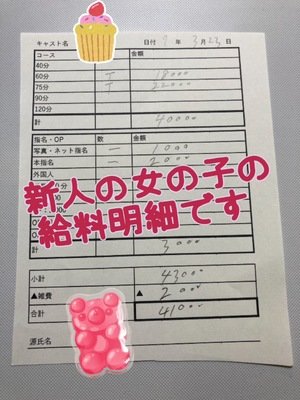 キャスト名 日付 7年 3月23日
コース 金額
40分
60分 T 18000
75分 T 22000
90分
120分
計 40000
指名・OP 数 金額
写真・ネット指名 一 1000
本指名 一 2000
外国人
新人の女の子の
給料明細です
計 3000
小計 43000
▲雑費 ▲ 2000
合計 41000
源氏名